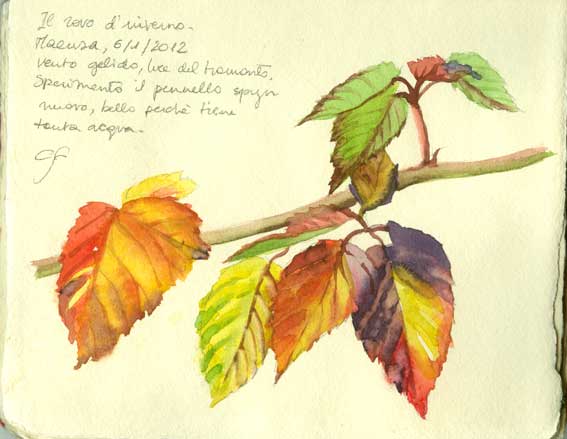 Il rovo d'inverno.
Maenza, 6/1/2012
vento gelido, luce del tramonto.
Sperimento il pennello
nuovo, bello perchè tiene
tanta acqua.